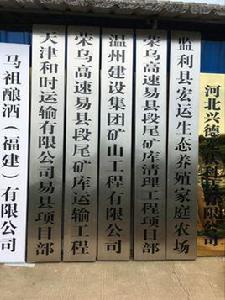 马祖酿酒（福建）有限公司
天津和时运输有限公司易县项目部
荣乌高速易县段尾矿库运输工程
温州建设集团矿山工程有限公司
荣乌高速易县段尾矿库清理工程项目部
监利县宏运生态养殖家庭农场
河北兴德